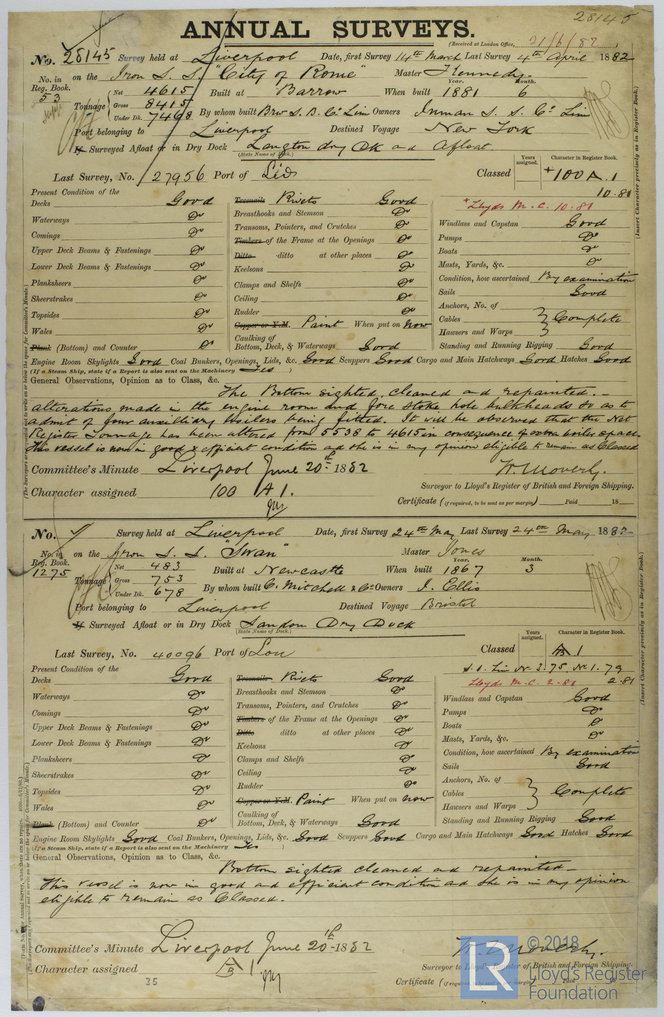 28145
ANNUAL SURVEYS.
(Received at London Office, 21/6/82
No. 28145 Survey held at Liverpool Date, first Survey 14th March Last Survey 4th April 1882
No. in Reg. Book. 53 on the Iron S. S. "City of Rome" Master Kennedy.
Tonnage Net 4615 Built at Barrow When built Year. 1881 Month. 6
Gross 8415
Under Dk. 7468 By whom built Brw S. B. Co Lim Owners Inman S. S. Co Lim
Port belonging to Liverpool Destined Voyage New York
If Surveyed Afloat or in Dry Dock Langton dry Dk and Afloat.
(State Name of Dock.)
Last Survey, No. 27956 Port of Classed Years assigned. Character in Register Book. +100 A.1
10.81
+Lloyds M.C. 10.81
Present Condition of the
Decks Good
Waterways Do
Comings Do
Upper Deck Beams & Fastenings Do
Lower Deck Beams & Fastenings Do
Planksheers Do
Sheerstrakes Do
Topsides Do
Wales Do
Plank (Bottom) and Counter Do
Treenails Rivets Good
Breasthooks and Stemson Do
Transoms, Pointers, and Crutches Do
Timbers of the Frame at the Openings Do
Ditto ditto at other places Do
Keelsons Do
Clamps and Shelfs Do
Ceiling Do
Rudder Do
Copper or Y.M. Paint When put on Now
Caulking of Bottom, Deck, & Waterways Good
Windlass and Capstan Good
Pumps Do
Boats Do
Masts, Yards, &c. Do
Condition, how ascertained By examination
Sails Good
Anchors, No. of
Cables } Complete
Hawsers and Warps
Standing and Running Rigging Good
Engine Room Skylights Good Coal Bunkers, Openings, Lids, &c. Good Scuppers Good Cargo and Main Hatchways Good Hatches Good
(If a Steam Ship, state if a Report is also sent on the Machinery Yes )
General Observations, Opinion as to Class, &c.
The Bottom sighted, cleaned and repainted.
alterations made in the engine room and fore stoke hole bulkheads so as to
admit of four auxiliary boilers being fitted. It will be observed that the Net
Register Tonnage has been altered from 5538 to 4615 in consequence of extra boiler space.
This vessel is now in good & efficient condition and she is in my opinion eligible to remain as Classed
Committee's Minute Liverpool June 20th 1882
Character assigned 100 A 1.
Surveyor to Lloyd's Register of British and Foreign Shipping.
Certificate (if required, to be sent as per margin) Paid 18
(Insert Character precisely as in Register Book.)
No. Survey held at Liverpool Date, first Survey 24th May Last Survey 24th May 1882
No. in Reg. Book. 1275 on the Iron S. S. "Swan" Master Jones
Tonnage Net 483 Built at Newcastle When built Year. 1867 Month. 3
Gross 753
Under Dk. 678 By whom built C. Mitchell & Co Owners J. Ellis
Port belonging to Liverpool Destined Voyage Bristol
If Surveyed Afloat or in Dry Dock Sandon Dry Dock
(State Name of Dock.)
Last Survey, No. 40096 Port of Lon Classed Years assigned. Character in Register Book. A 1
S.S. Liv No 3.75, No 1.79
Lloyds M.C. 2.81 2.81
Present Condition of the
Decks Good
Waterways Do
Comings Do
Upper Deck Beams & Fastenings Do
Lower Deck Beams & Fastenings Do
Planksheers Do
Sheerstrakes Do
Topsides Do
Wales Do
Plank (Bottom) and Counter Do
Treenails Rivets Good
Breasthooks and Stemson Do
Transoms, Pointers, and Crutches Do
Timbers of the Frame at the Openings Do
Ditto ditto at other places Do
Keelsons Do
Clamps and Shelfs Do
Ceiling Do
Rudder Do
Copper or Y.M. Paint When put on now
Caulking of Bottom, Deck, & Waterways Good
Windlass and Capstan Good
Pumps Do
Boats Do
Masts, Yards, &c. Do
Condition, how ascertained By examination
Sails Good
Anchors, No. of
Cables } Complete
Hawsers and Warps
Standing and Running Rigging Good
Engine Room Skylights Good Coal Bunkers, Openings, Lids, &c. Good Scuppers Good Cargo and Main Hatchways Good Hatches Good
(If a Steam Ship, state if a Report is also sent on the Machinery Yes )
General Observations, Opinion as to Class, &c.
Bottom sighted cleaned and repainted
This vessel is now in good and efficient condition and she is in my opinion
eligible to remain as Classed.
Committee's Minute Liverpool June 20th 1882
Character assigned A B 1
35
Surveyor to Lloyd's Register of British and Foreign Shipping.
Certificate
(Insert Character precisely as in Register Book.)
© 2018
LR
Lloyd's Register
Foundation